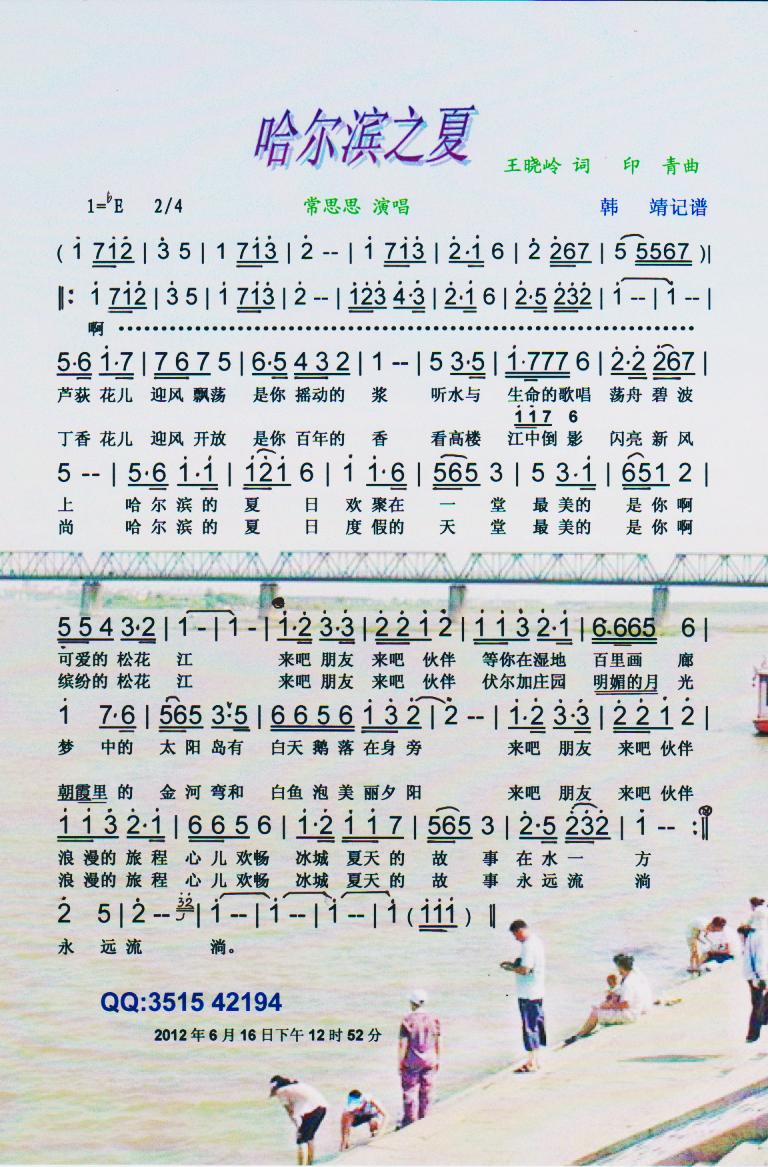 哈尔滨之夏
王晓岭 词 印 青曲
1=♭E 2/4 常思思 演唱 韩 靖记谱
( 1̇ 71̇2̇ | 3̇ 5 | 1 71̇3̇ | 2̇ -- | 1̇ 71̇3̇ | 2̇·1̇ 6 | 2̇ 2̇67 | 5 5567 )|
‖: 1̇ 71̇2̇ | 3̇ 5 | 1̇ 71̇3̇ | 2̇ -- | 1̇2̇3̇ 4̇·3̇ | 2̇·1̇ 6 | 2̇·5 2̇3̇2̇ | 1̇ -- | 1̇ -- |
啊
5·6 1̇·7 | 7 6 7 5 | 6·5 4 3 2 | 1 -- | 5 3·5 | 1̇·777 6 | 2̇·2̇ 2̇67 |
芦荻 花儿 迎风 飘荡 是你 摇动的 浆 听水与 生命的歌唱 荡舟 碧 波
1̇1̇7 6
丁香 花儿 迎风 开放 是你 百年的 香 看高楼 江中倒 影 闪亮 新 风
5 -- | 5·6 1̇·1̇ | 1̇2̇1̇ 6 | 1̇ 1̇·6 | 565 3 | 5 3·1̇ | 651 2 |
上 哈 尔 滨 的 夏 日 欢 聚在 一 堂 最 美的 是 你 啊
尚 哈 尔 滨 的 夏 日 度 假的 天 堂 最 美的 是 你 啊
5 5 4 3·2 | 1 - | 1 - | 1̇·2̇ 3̇·3̇ | 2̇ 2̇ 1̇ 2̇ | 1̇ 1̇ 3̇ 2̇·1̇ | 6.665 6 |
可爱的 松花 江 来吧 朋友 来吧 伙伴 等你在湿地 百里画 廊
缤纷的 松花 江 来吧 朋友 来吧 伙伴 伏尔加庄园 明媚的月 光
1̇ 7·6 | 565 3·5 | 6 6 5 6 | 1̇ 3̇ 2̇ | 2̇ -- | 1̇·2̇ 3̇·3̇ | 2̇ 2̇ 1̇ 2̇ |
梦 中的 太 阳 岛有 白天 鹅 落 在身 旁 来吧 朋友 来吧 伙伴
朝霞里 的 金 河 弯和 白鱼 泡 美 丽夕 阳 来吧 朋友 来吧 伙伴
1̇ 1̇ 3̇ 2̇·1̇ | 6 6 5 6 | 1̇·2̇ 1̇ 1̇ 7 | 565 3 | 2̇·5 2̇3̇2̇ | 1̇ -- :‖
浪 漫的 旅 程 心 儿 欢畅 冰城 夏天 的 故 事 在 水 一 方
浪 漫的 旅 程 心 儿 欢畅 冰城 夏天 的 故 事 永 远 流 淌
2̇ 5 | 2̇ -- 3̇2̇ | 1̇ -- | 1̇ -- | 1̇ -- | 1̇ ( 1̇1̇1̇ ) ‖
永 远 流 淌。
QQ:3515 42194
2012 年 6 月 16 日下午 12 时 52 分